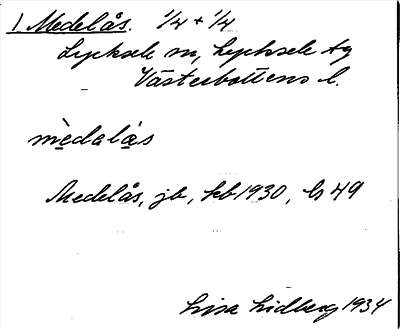 1 Medelås. 1/4 + 1/4
Lycksele sn, Lycksele tg
Västerbottens l.
mèdalås
Medelås, jb, kb 1930, bl 49
Lisa Lidberg 1934